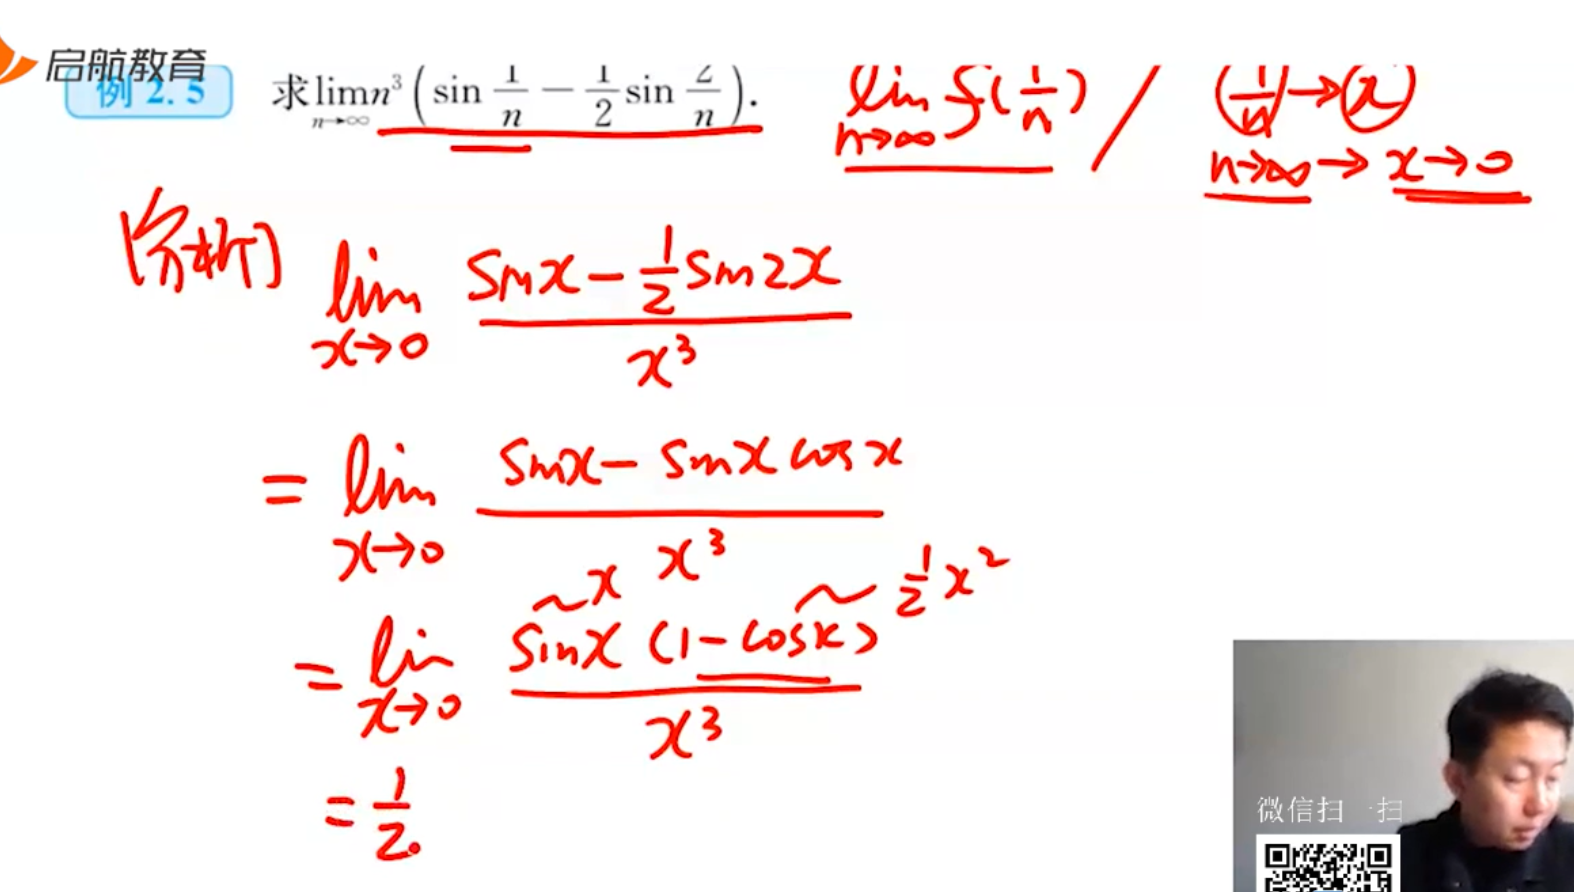 启航教育
例 2.5 求 lim n→∞ n³ ( sin 1/n − 1/2 sin 2/n ).
lim n→∞ f(1/n) / (1/n) → (x)
n→∞ → x→0
[分析] lim x→0 (sinx − 1/2 sin2x) / x³
= lim x→0 (sinx − sinx cosx) / x³
~x ~ 1/2 x²
= lim x→0 sinx (1 − cosx) / x³
= 1/2.
微信扫一扫